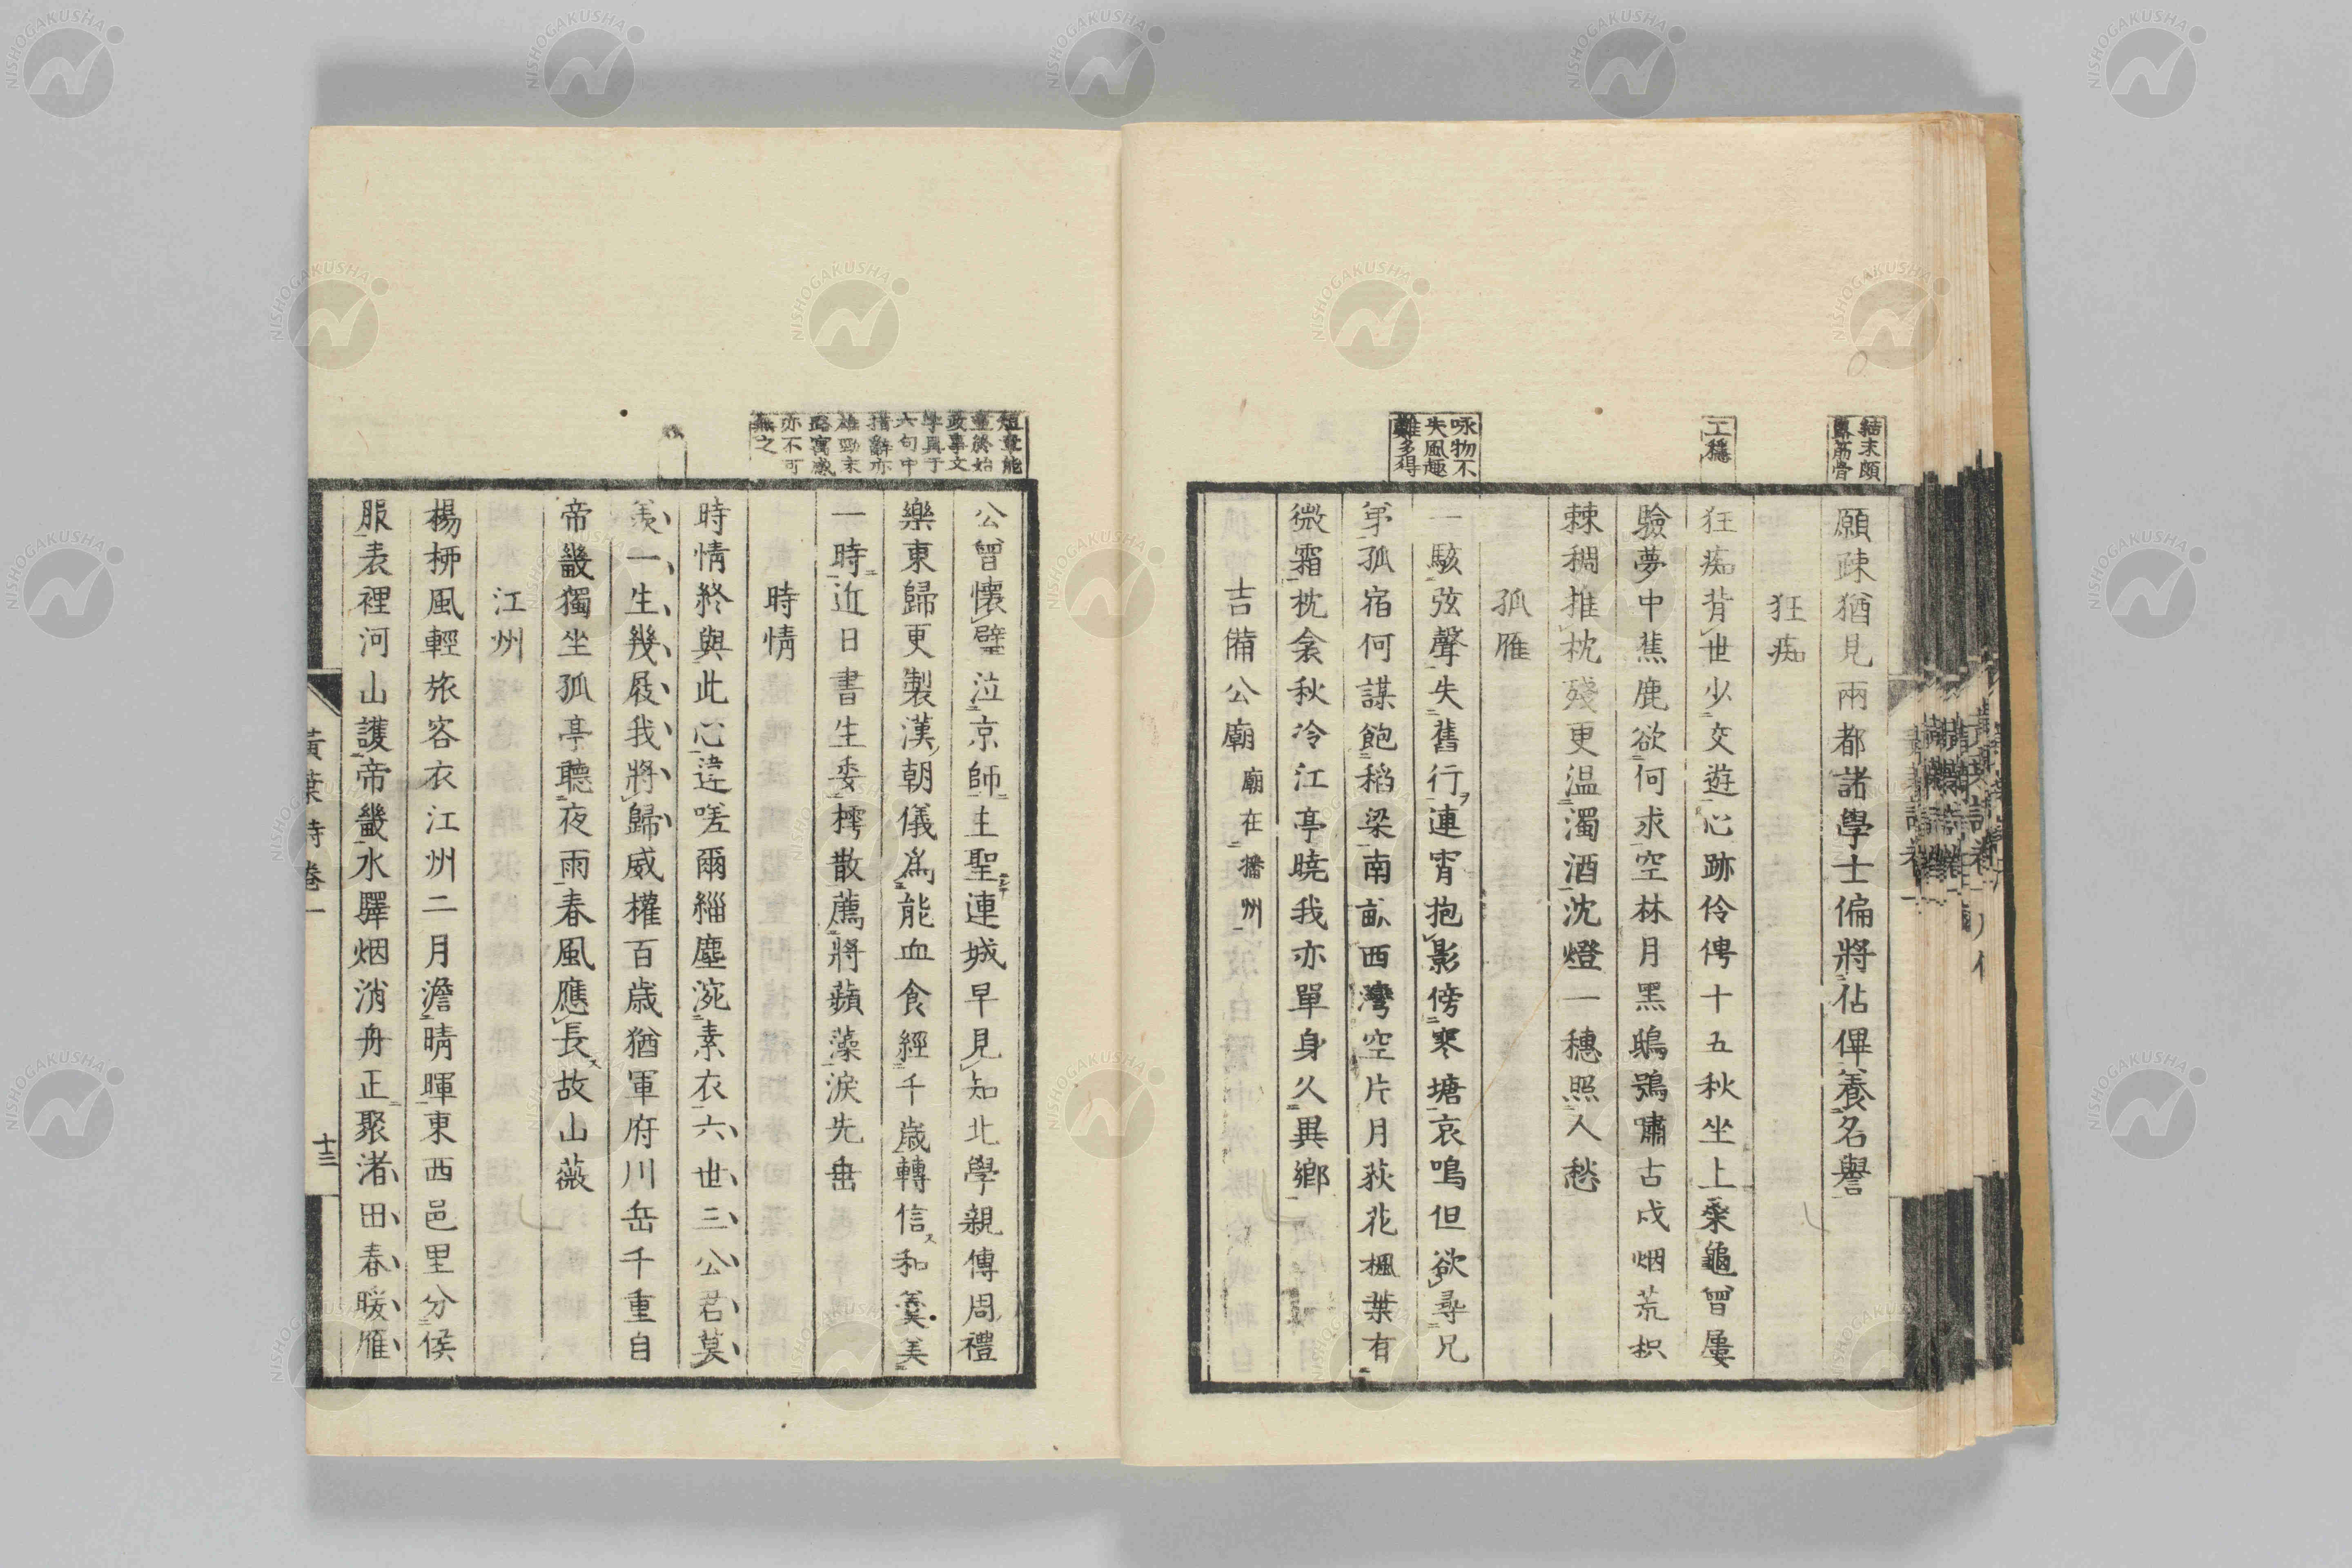 結末頗
露筋骨
工穩
咏物不
失風趣
難多得
願疎猶見兩都諸學士偏將佔俾養名譽
狂痴
狂痴背世少交遊心跡伶俜十五秋坐上棄龜曾屢
驗夢中蕉鹿欲何求空林月黑鵰鶚嘯古戍烟荒枳
棘稠推枕殘更温濁酒沈燈一穗照人愁
孤雁
一駭弦聲失舊行連宵抱影傍寒塘哀鳴但欲尋兄
弟孤宿何謀飽稻梁南畝西灣空片月荻花楓葉有
微霜枕衾秋冷江亭曉我亦單身久異鄉
吉備公廟 廟在播州
短章能
董於始
政事文
學興于
六句中
措辭亦
雄勁末
路寓感
亦不可
無之
公曾懷璧泣京師主聖連城早見知北學親傳周禮
樂東歸更製漢朝儀爲能血食經千歲轉信和羹美
一時近日書生委樗散薦將蘋藻淚先垂
時情
時情終與此心違嗟爾緇塵涴素衣六世三公君莫
羨一生幾屐我將歸威權百歲猶軍府川岳千重自
帝畿獨坐孤亭聽夜雨春風應長故山薇
江州
楊栁風輕旅客衣江州二月澹晴暉東西邑里分侯
服表裡河山護帝畿水驛烟消舟正聚渚田春暖雁
黃葉詩卷一
十三
NISHOGAKUSHA